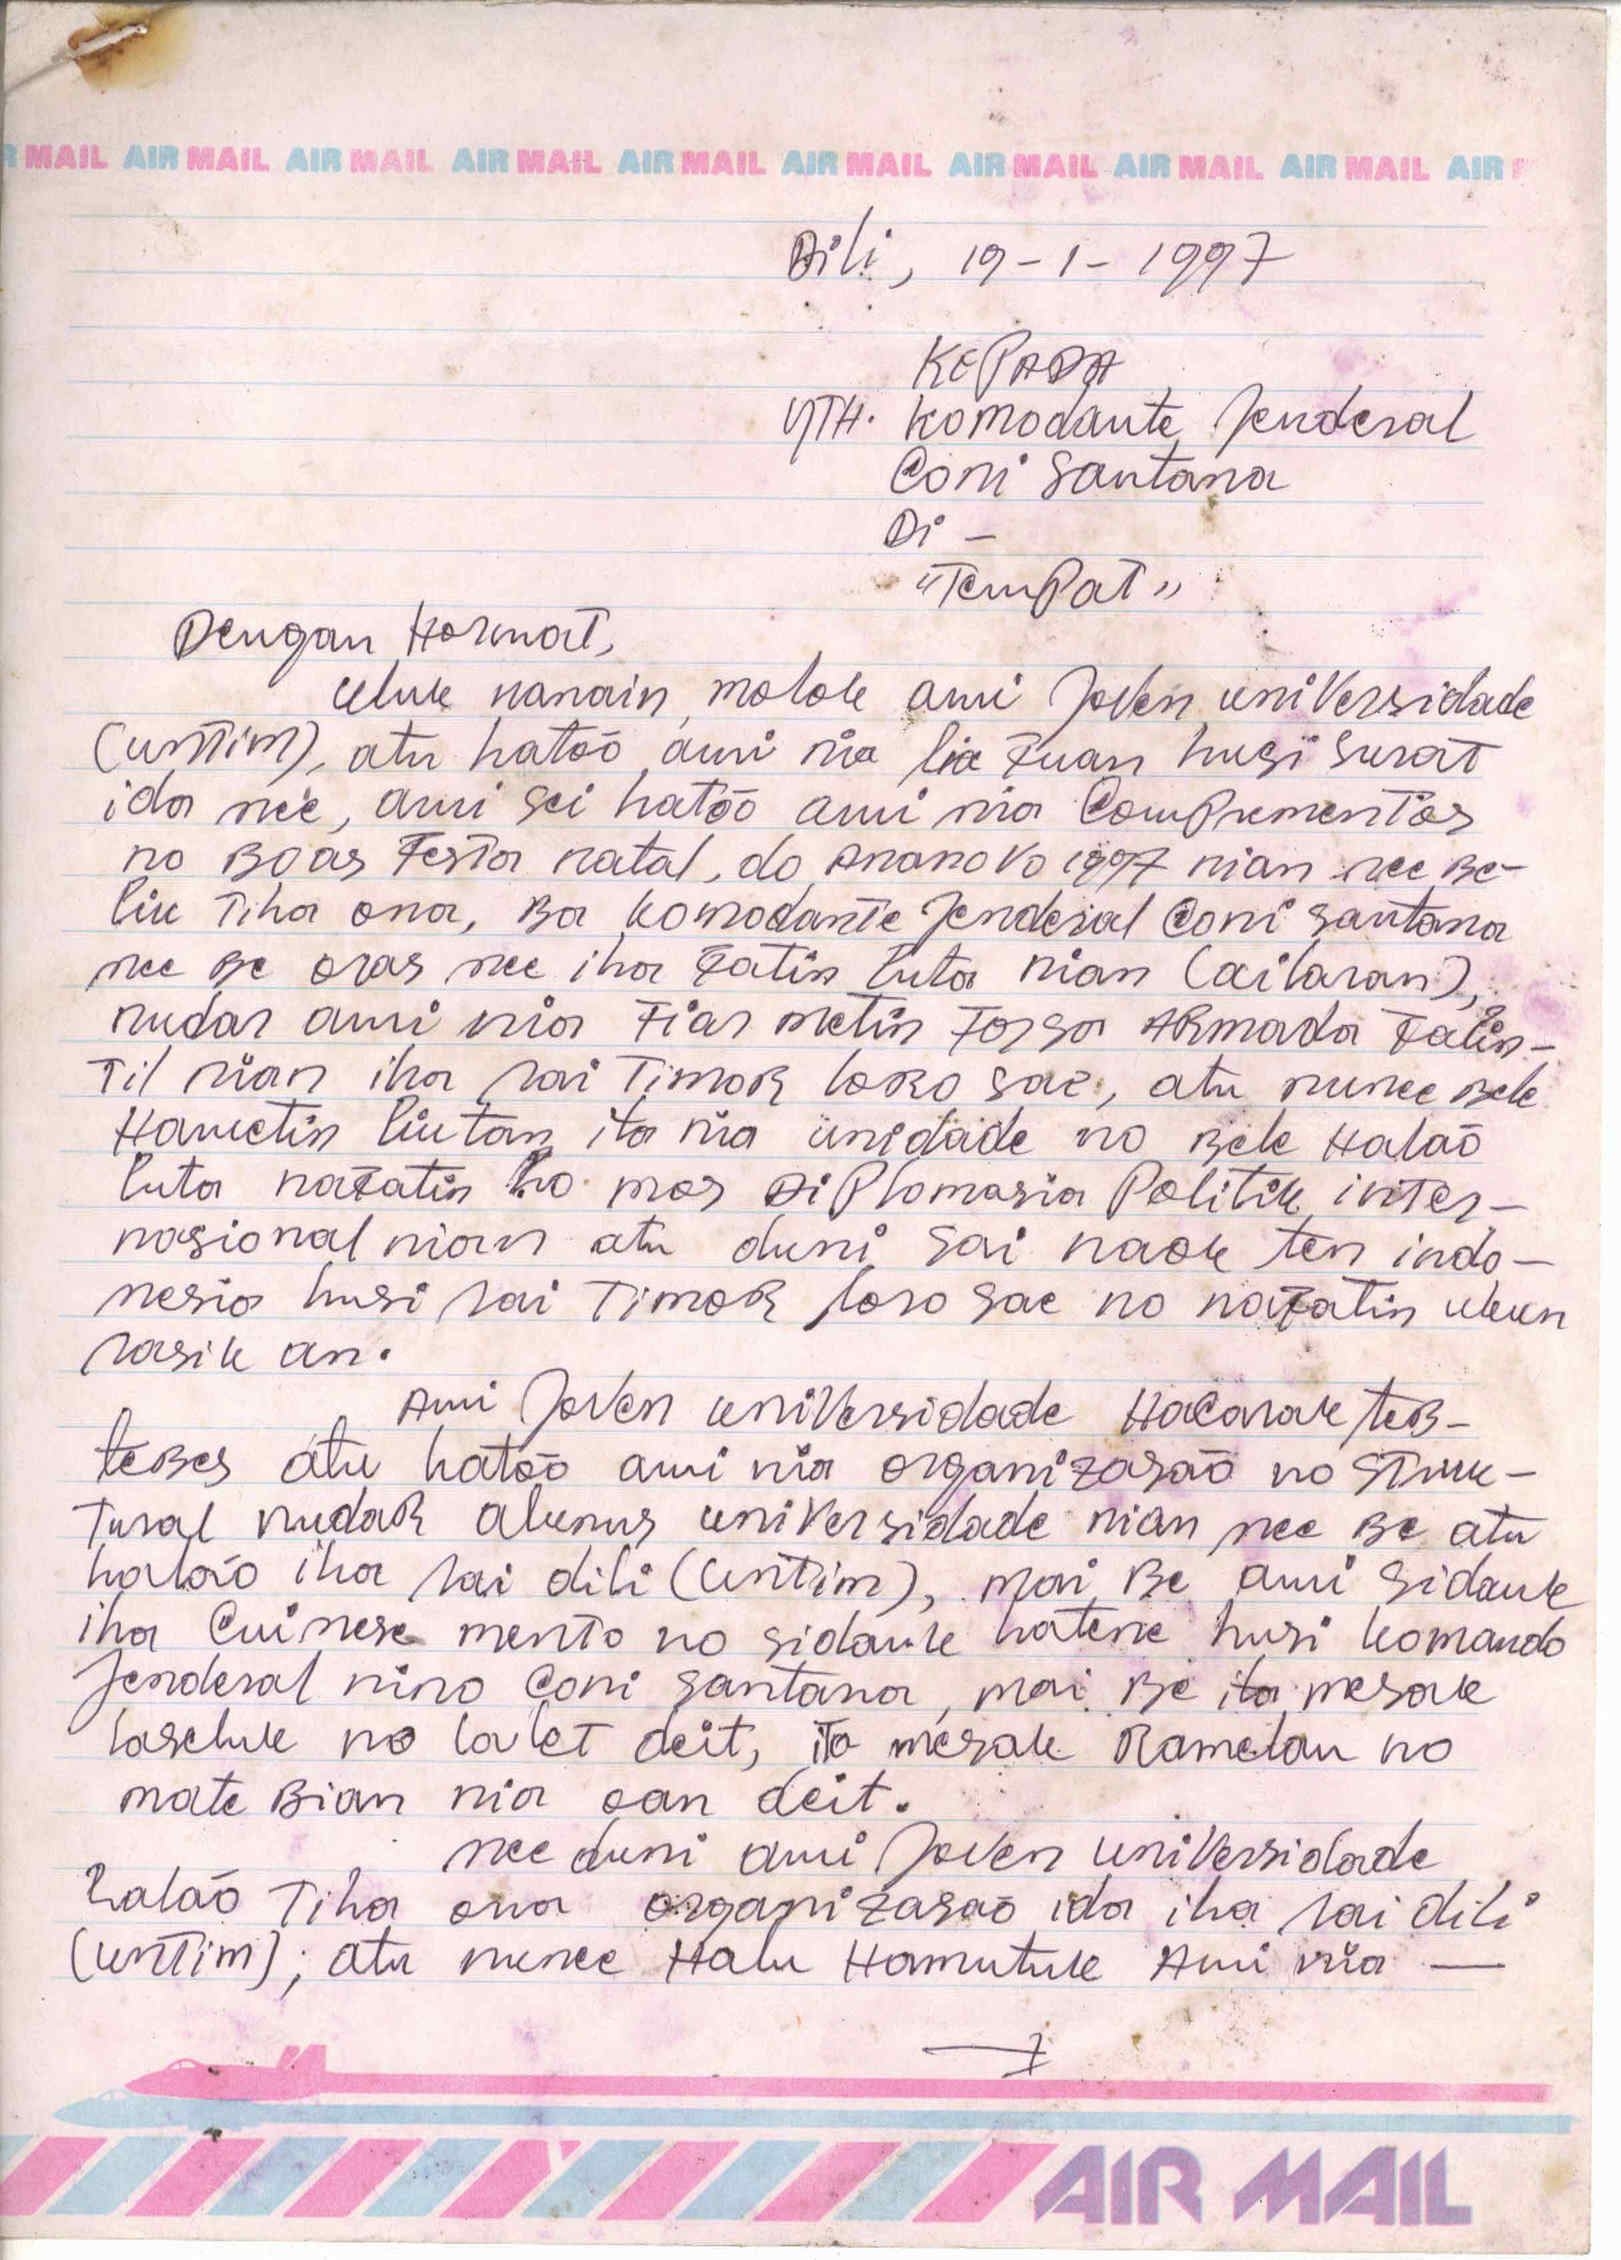 R MAIL AIR MAIL AIR MAIL AIR MAIL AIR MAIL AIR MAIL AIR MAIL AIR MAIL AIR MAIL AIR
Dili, 19-1-1997
KEPADA
YTH. Komodante Jenderal
Coni Santana
Di -
"TemPat"
Dengan Hormat,
uluk nanain, molok ami Joven universidade
(untim), atu hatoõ ami nia lia Fuan husi surat
ida neé, ami sei hatoõ ami nia Comprementos
no Boas Festa natal, do Anano Vo 1997 nian nee Be-
liu Tiha ona, Ba komodante Jenderal Coni Santana
nee Be oras nee iha Fatin luta nian (ailaran),
nudar ami nia Fiar metin Forsa ARmada Falin-
Til nian iha rai TimoR loRo sae, atu nunee Bele
Hametin liutan ita nia unidade no Bele Halaõ
luta naFatin ho mos DiPlomasia Politik inter-
nasional nian atu duni sai naok ten indo-
nesia husi rai TimoR loro sae no naFatin ukun
rasik an.
Ami Joven universidade Hacarak teB-
teBes atu hatoõ ami nia organizasaõ no STruk-
Tural nudaR alunus universidade nian nee Be atu
halaõ iha rai dili (Untim), mai Be ami sidauk
iha Cuinese mento no sidauk hatene husi komando
Jenderal nino Coni Santana, mai Be ita mesak
laseluk no laleT deit, iTa mesak Ramelau no
mate Bian nia oan deit.
nee duni ami Joven universidade
halaõ Tiha ona organizasaõ ida iha rai dili
(unTim); atu nunee Halu Hamutuk Ami nia —
AIR MAIL